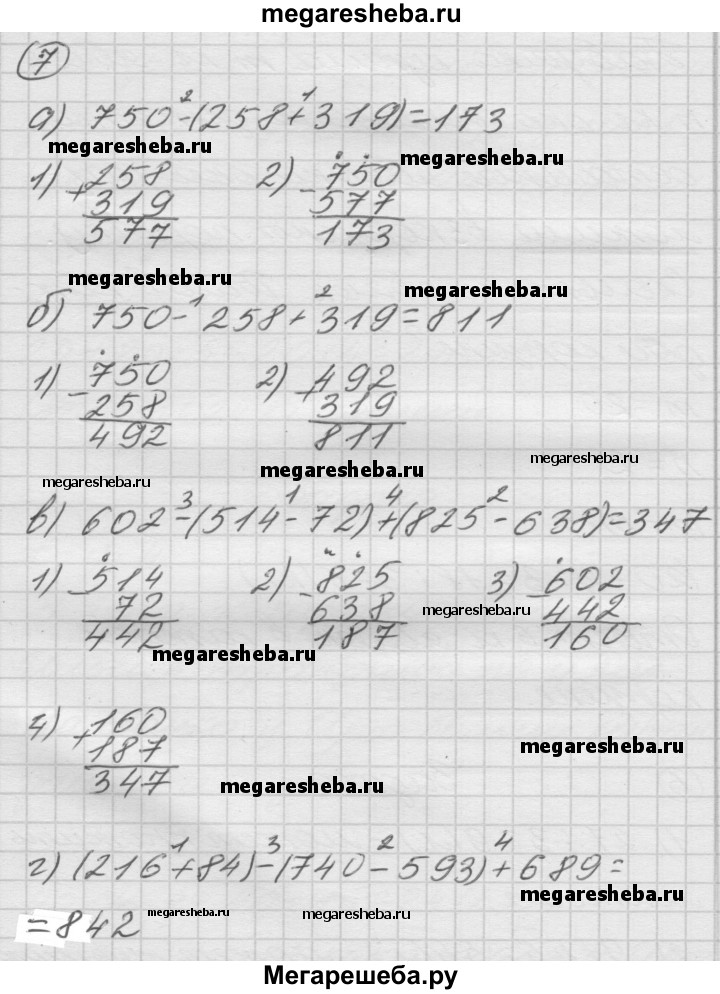 megaresheba.ru
7
а) 750 -² (258 +¹ 319) = 173
megaresheba.ru megaresheba.ru
1) 258 2) 750
+ 319 - 577
577 173
megaresheba.ru megaresheba.ru
б) 750 -¹ 258 +² 319 = 811
1) 750 2) 492
- 258 + 319
492 811
megaresheba.ru megaresheba.ru megaresheba.ru
в) 602 -³ (514 -¹ 72) +⁴ (825 -² 638) = 347
1) 514 2) 825 3) 602
- 72 - 638 - 442
442 187 160
megaresheba.ru megaresheba.ru
4) 160
+ 187
347
megaresheba.ru megaresheba.ru
г) (216 +¹ 84) -³ (740 -² 593) +⁴ 689 =
megaresheba.ru
= 842 megaresheba.ru megaresheba.ru
Мегарешеба.ру